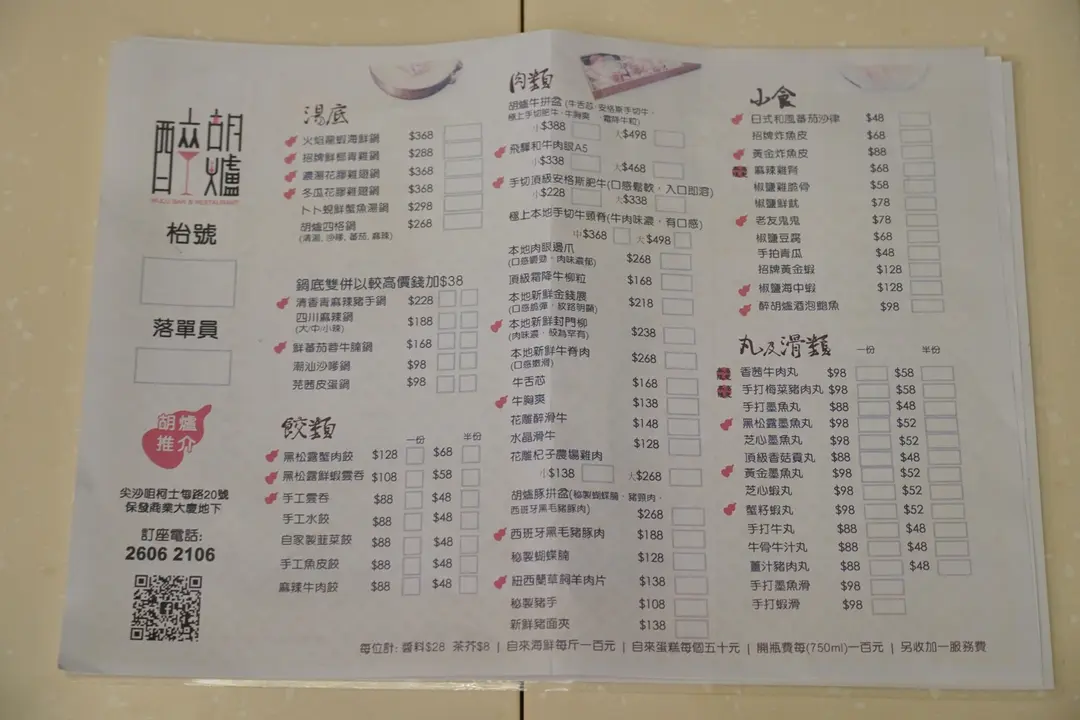 醉胡爐
WULU BAR & RESTAURANT
枱號
落單員
胡爐推介
尖沙咀柯士甸路20號
保發商業大廈地下
訂座電話:
2606 2106
湯底
火焰龍蝦海鮮鍋 $368
招牌鮮椰青雞鍋 $288
濃湯花膠雞翅鍋 $368
冬瓜花膠雞翅鍋 $368
卜卜蜆鮮蟹魚湯鍋 $298
胡爐四格鍋 $268
(清湯, 沙嗲, 蕃茄, 麻辣)
鍋底雙併以較高價錢加$38
清香青麻辣豬手鍋 $228
四川麻辣鍋 $188
(大/中/小辣)
鮮蕃茄蓉牛腩鍋 $168
潮汕沙嗲鍋 $98
芫茜皮蛋鍋 $98
餃類 一份 半份
黑松露蟹肉餃 $128 $68
黑松露鮮蝦雲吞 $108 $58
手工雲吞 $88 $48
手工水餃 $88 $48
自家製韭菜餃 $88 $48
手工魚皮餃 $88 $48
麻辣牛肉餃 $88 $48
肉類
胡爐牛拼盆 (牛舌芯, 安格斯手切牛,
極上手切肥牛, 牛胸爽, 霜降牛粒)
小$388 大$498
飛驒和牛肉眼A5
小$338 大$468
手切頂級安格斯肥牛(口感鬆軟，入口即溶)
小$228 大$338
極上本地手切牛頸脊(牛肉味濃，有口感)
中$368 大$498
本地肉眼邊爪 $268
(口感嚡勁，肉味濃郁)
頂級霜降牛柳粒 $168
本地新鮮金錢𦟌 $218
(口感脆彈，紋路明顯)
本地新鮮封門柳 $238
(肉味濃，較為罕有)
本地新鮮牛脊肉 $268
(口感嫩滑)
牛舌芯 $168
牛胸爽 $138
花雕醉滑牛 $148
水晶滑牛 $128
花雕杞子農場雞肉
小$138 大$268
胡爐豚拼盆(秘製蝴蝶腩, 豬頸肉,
西班牙黑毛豬豚肉) $268
西班牙黑毛豬豚肉 $188
秘製蝴蝶腩 $128
紐西蘭草飼羊肉片 $138
秘製豬手 $108
新鮮豬面夾 $138
小食
日式和風蕃茄沙律 $48
招牌炸魚皮 $68
黃金炸魚皮 $88
麻辣雞腎 $68
椒鹽雞脆骨 $58
椒鹽鮮魷 $78
老友鬼鬼 $78
椒鹽豆腐 $68
手拍青瓜 $48
招牌黃金蝦 $128
椒鹽海中蝦 $128
醉胡爐酒泡鮑魚 $98
丸及滑類 一份 半份
香茜牛肉丸 $98 $58
手打梅菜豬肉丸 $98 $58
手打墨魚丸 $88 $48
黑松露墨魚丸 $98 $52
芝心墨魚丸 $98 $52
頂級香菇貢丸 $88 $48
黃金墨魚丸 $98 $52
芝心蝦丸 $98 $52
蟹籽蝦丸 $98 $52
手打牛丸 $88 $48
牛骨牛汁丸 $88 $48
薑汁豬肉丸 $88 $48
手打墨魚滑 $98
手打蝦滑 $98
每位計: 醬料$28 茶芥$8 | 自來海鮮每斤一百元 | 自來蛋糕每個五十元 | 開瓶費每(750ml)一百元 | 另收加一服務費